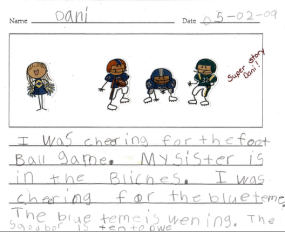 Name Dani Date 05-02-09
Super story Dani!
I was chering for the foot
Ball game. My sister is
in the Bliches. I was
chering for the blue teme.
The blue teme is wening. The
scorbor is ten to